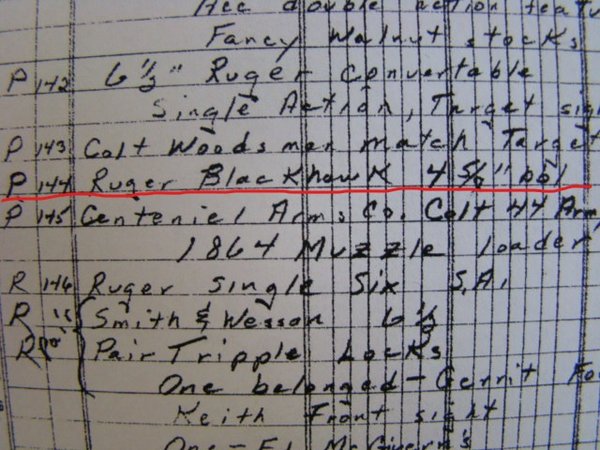 Acc double action featu
Fancy Walnut stocks
P 142 6 1/2" Ruger Convertable
Single Action, Target sig
P 143 Colt Woodsman match Target
P 144 Ruger Blackhawk 4 5/8" bbl
P 145 Centeniel Arms Co. Colt 44 Arm
1864 Muzzle loader
R 146 Ruger Single Six S.A.
R Smith & Wesson 6 1/2
R Pair Tripple Locks
One belonged - Gerrit Fo
Keith Front sight
One - Ed McGivern's